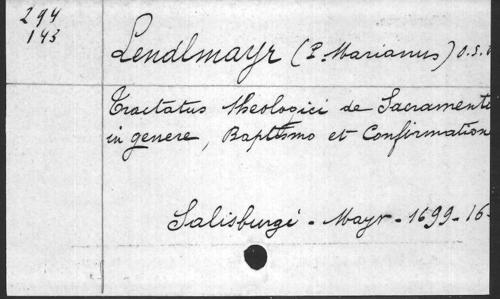 294
143
Lendlmayr (P. Marianus) O.S.
Tractatus theologici de Sacramento
in genere, Baptismo et Confirmation
Salisburgi - Mayr - 1699 - 16